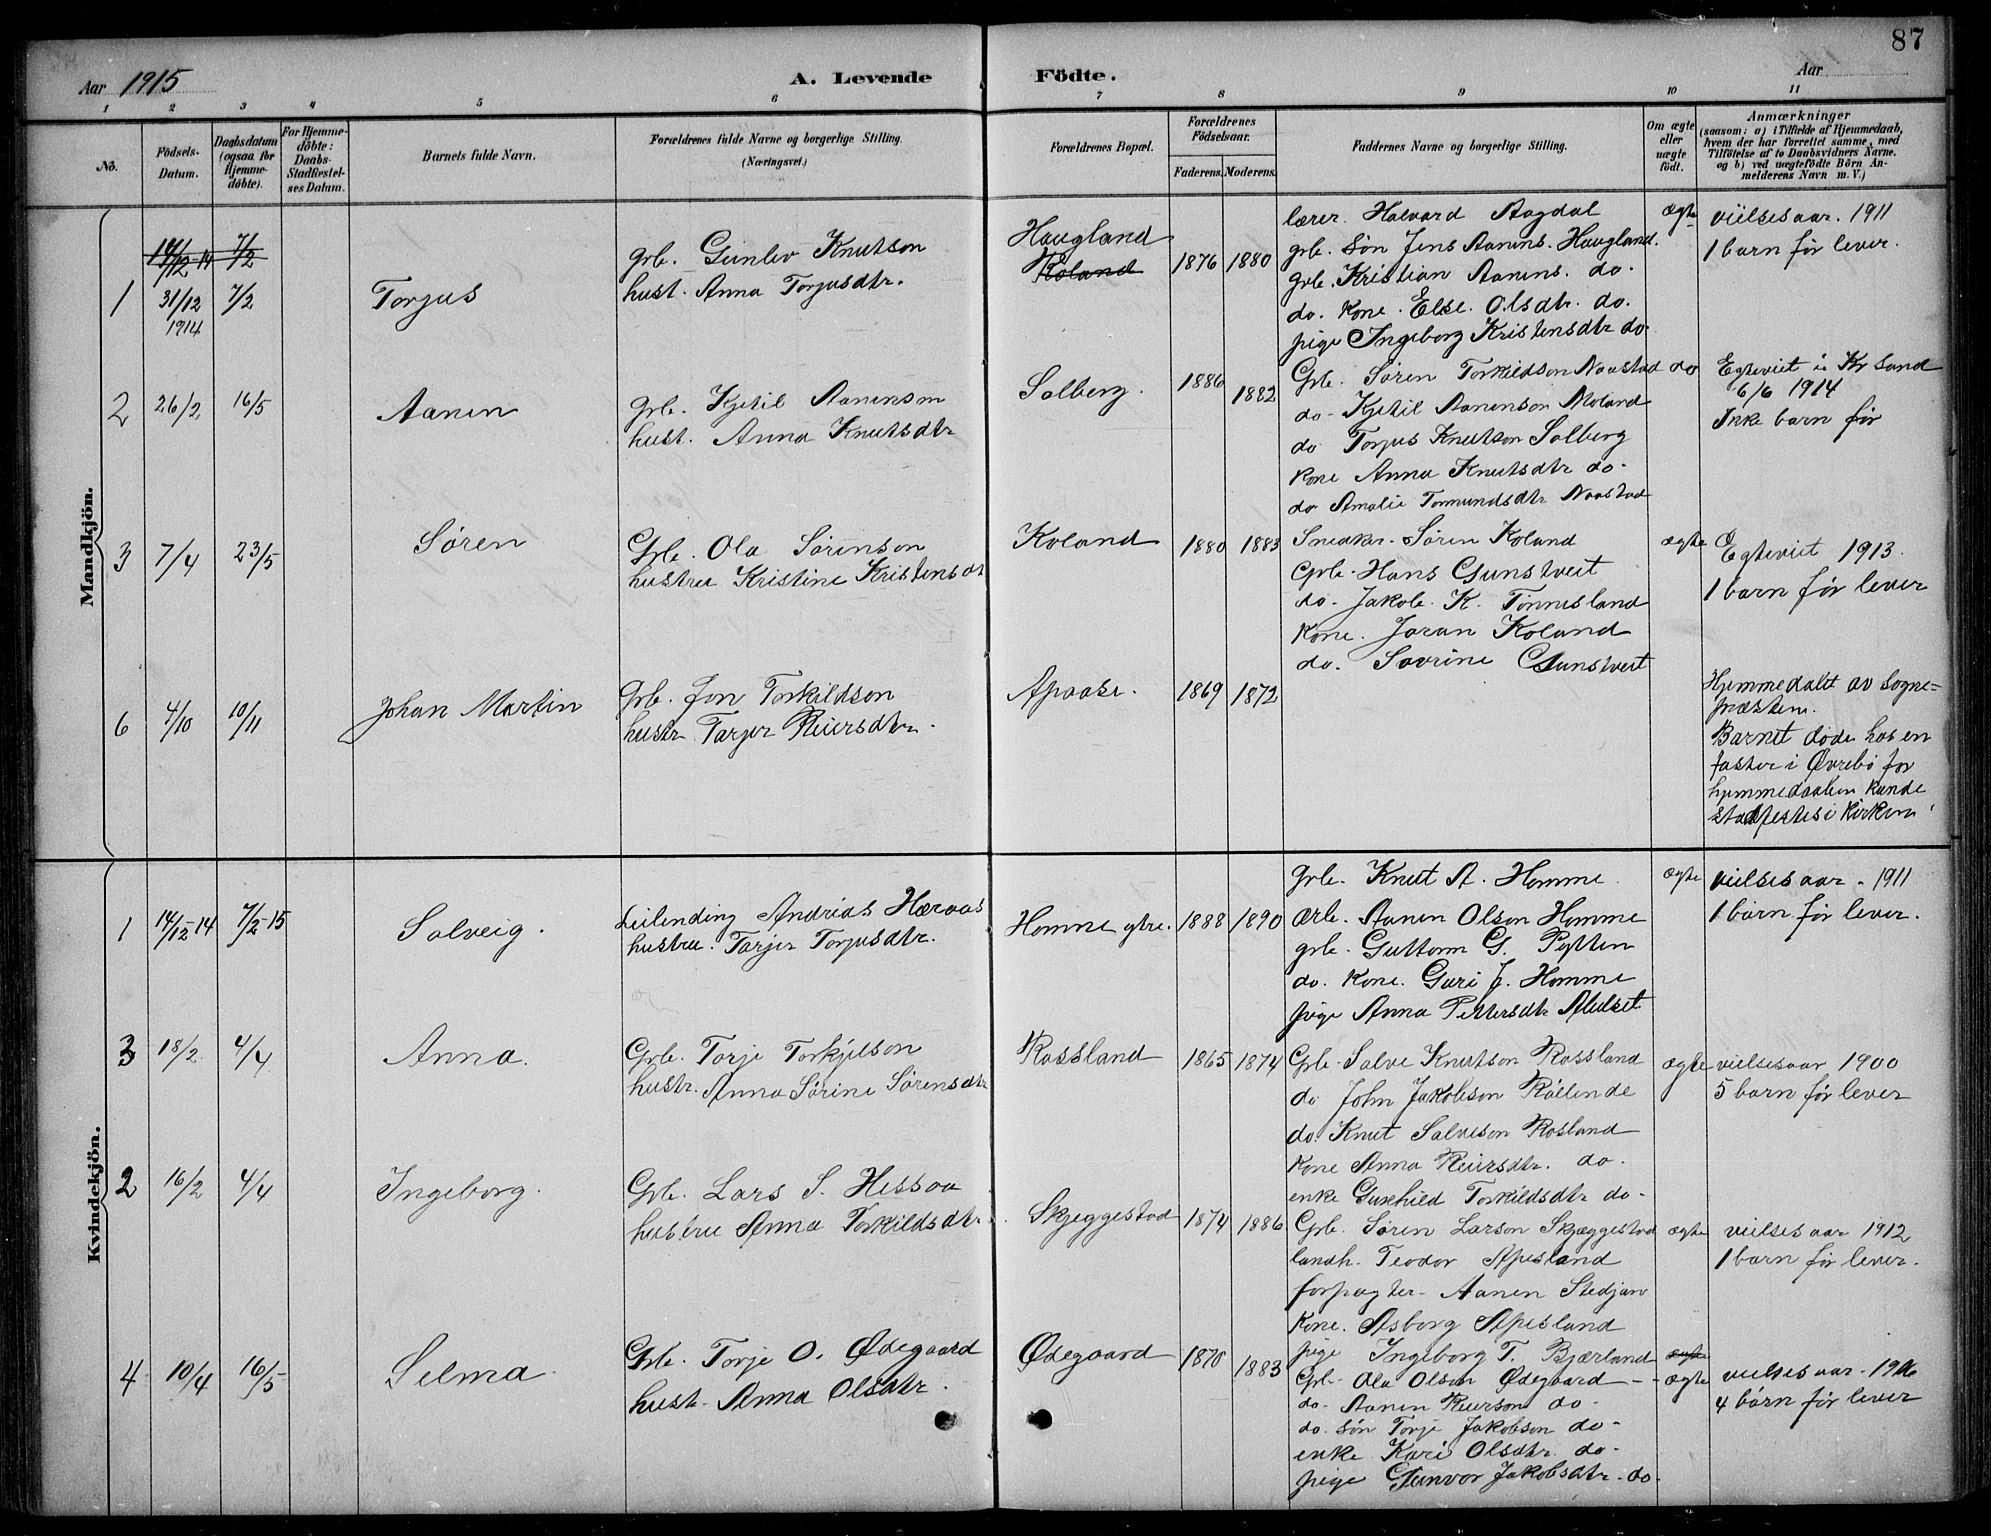 87
Aar 1915
A. Levende Födte.
Aar
1 2 3 4 5 6 7 8 9 10 11
No.
Födsels-Datum.
Daabsdatum (ogsaa for Hjemmedöbte).
For Hjemmedöbte: Daabs-Stadfestelses Datum.
Barnets fulde Navn.
Forældrenes fulde Navne og borgerlige Stilling.
(Næringsvei.)
Forældrenes Bopæl.
Forældrenes Födselsaar.
Faderens. Moderens.
Faddernes Navne og borgerlige Stilling.
Om ægte eller uægte födt.
Anmærkninger
(saasom: a) i Tilfælde af Hjemmedaab,
hvem der har forrettet samme, med
Tilföielse af to Daabsvidners Navne,
og b) ved uægtefödte Börn Anmelderens Navn m. V.)
Mandkjön.
14/12-14 7/2
1 31/12 1914 7/2 Torjus
grb. Gunlev Knutson
hust. Anna Torjusdtr.
Haugland
Koland
1876 1880
lærer. Halvard Aagdal
grb. søn Jens Aanens. Haugland.
grb. Kristian Aanens. do.
do. kone. Else Olsdtr. do.
pige Ingeborg Kristensdtr do.
ægte
viilsesaar. 1911
1 barn før lever.
2 26/2 16/5 Aanen
grb. Kjetil Aanenson
hust. Anna Knutsdtr
Solberg.
1886 1882
Grb. Søren Torkildson Naastad
do. Kjetil Aanenson Moland
do Torjus Knutson Solberg
kone Anna Knutsdtr do.
do Amalie Tormundsdtr Naastad
do
Egteviet i Kr sand
6/6 1914
Ikke barn før
3 7/4 23/5 Søren
Grb. Ola Sørenson
hustru Kristine Kristensdt
Koland
1880 1883
Snedker. Søren Koland
Grb. Hans Gunstveit
do. Jakob. K. Tønnesland
Kone. Joran Koland
do. Sovrine Gunstveit
ægte
Egteviet 1913.
1 barn før lever
6 4/10 10/11 Johan Martin
Grb. Jon Torkildson
hustr Tarjer Reiersdtr.
Apaase.
1869 1872
Hjemmedøbt av sogne=
præsten.
Barnet døde hos en
faster i Øvrebø før
hjemmedaaben kunde
stadfestes i Kirken
Kvindekjön.
1 14/12-14 7/2-15 Solveig.
Leilending Andrias Hæraas
hustru. Tarjer Torjusdtr.
Homme ytre.
1888 1890
Grb. Knut A. Homme.
arb. Aanen Olson Homme
grb. Guttorm G. Pytten
do. kone. Guri J. Homme
pige Anna Pettersdtr
ægte
viilsesaar. 1911
1 barn før lever.
3 18/2 4/4 Anna.
Grb. Torje Torkjelson
hustr. Anna Sørine Sørensdtr
Rossland
1865 1874
Grb. Salve Knutson Rossland
do John Jakobson
do. Knut Salveson Rosland
Kone Anna Reiersdtr. do.
enke Gunhild Torkildsdtr do.
ægte
vielsesaar 1900
5 barn før lever
2 16/2 4/4 Ingeborg.
Grb. Lars S. Hessaa
hustru Anna Torkildsdtr.
Skjeggestad
1874 1886
Grb. Søren Larson Skjæggestad
landh. Teodor Apesland
forpagter. Aanen Stedjan
Kone. Asborg Apesland
pige Ingeborg T. Bjærland
ægte
vielsesaar 1912
1 barn før lever.
4 10/4 16/5 Selma.
Grb. Torje O. Ødegaard
hust. Anna Olsdtr.
Ødegaard
1870 1883
Grb. Ola Olson Ødegaard
do. Aanen Reierson do
do. søn Torje Jakobson do
enke Kari Olsdtr. do
pige Gunvor Jakobsdtr. do.
ægte
ægte
vielsesaar. 1906
4 børn før lever